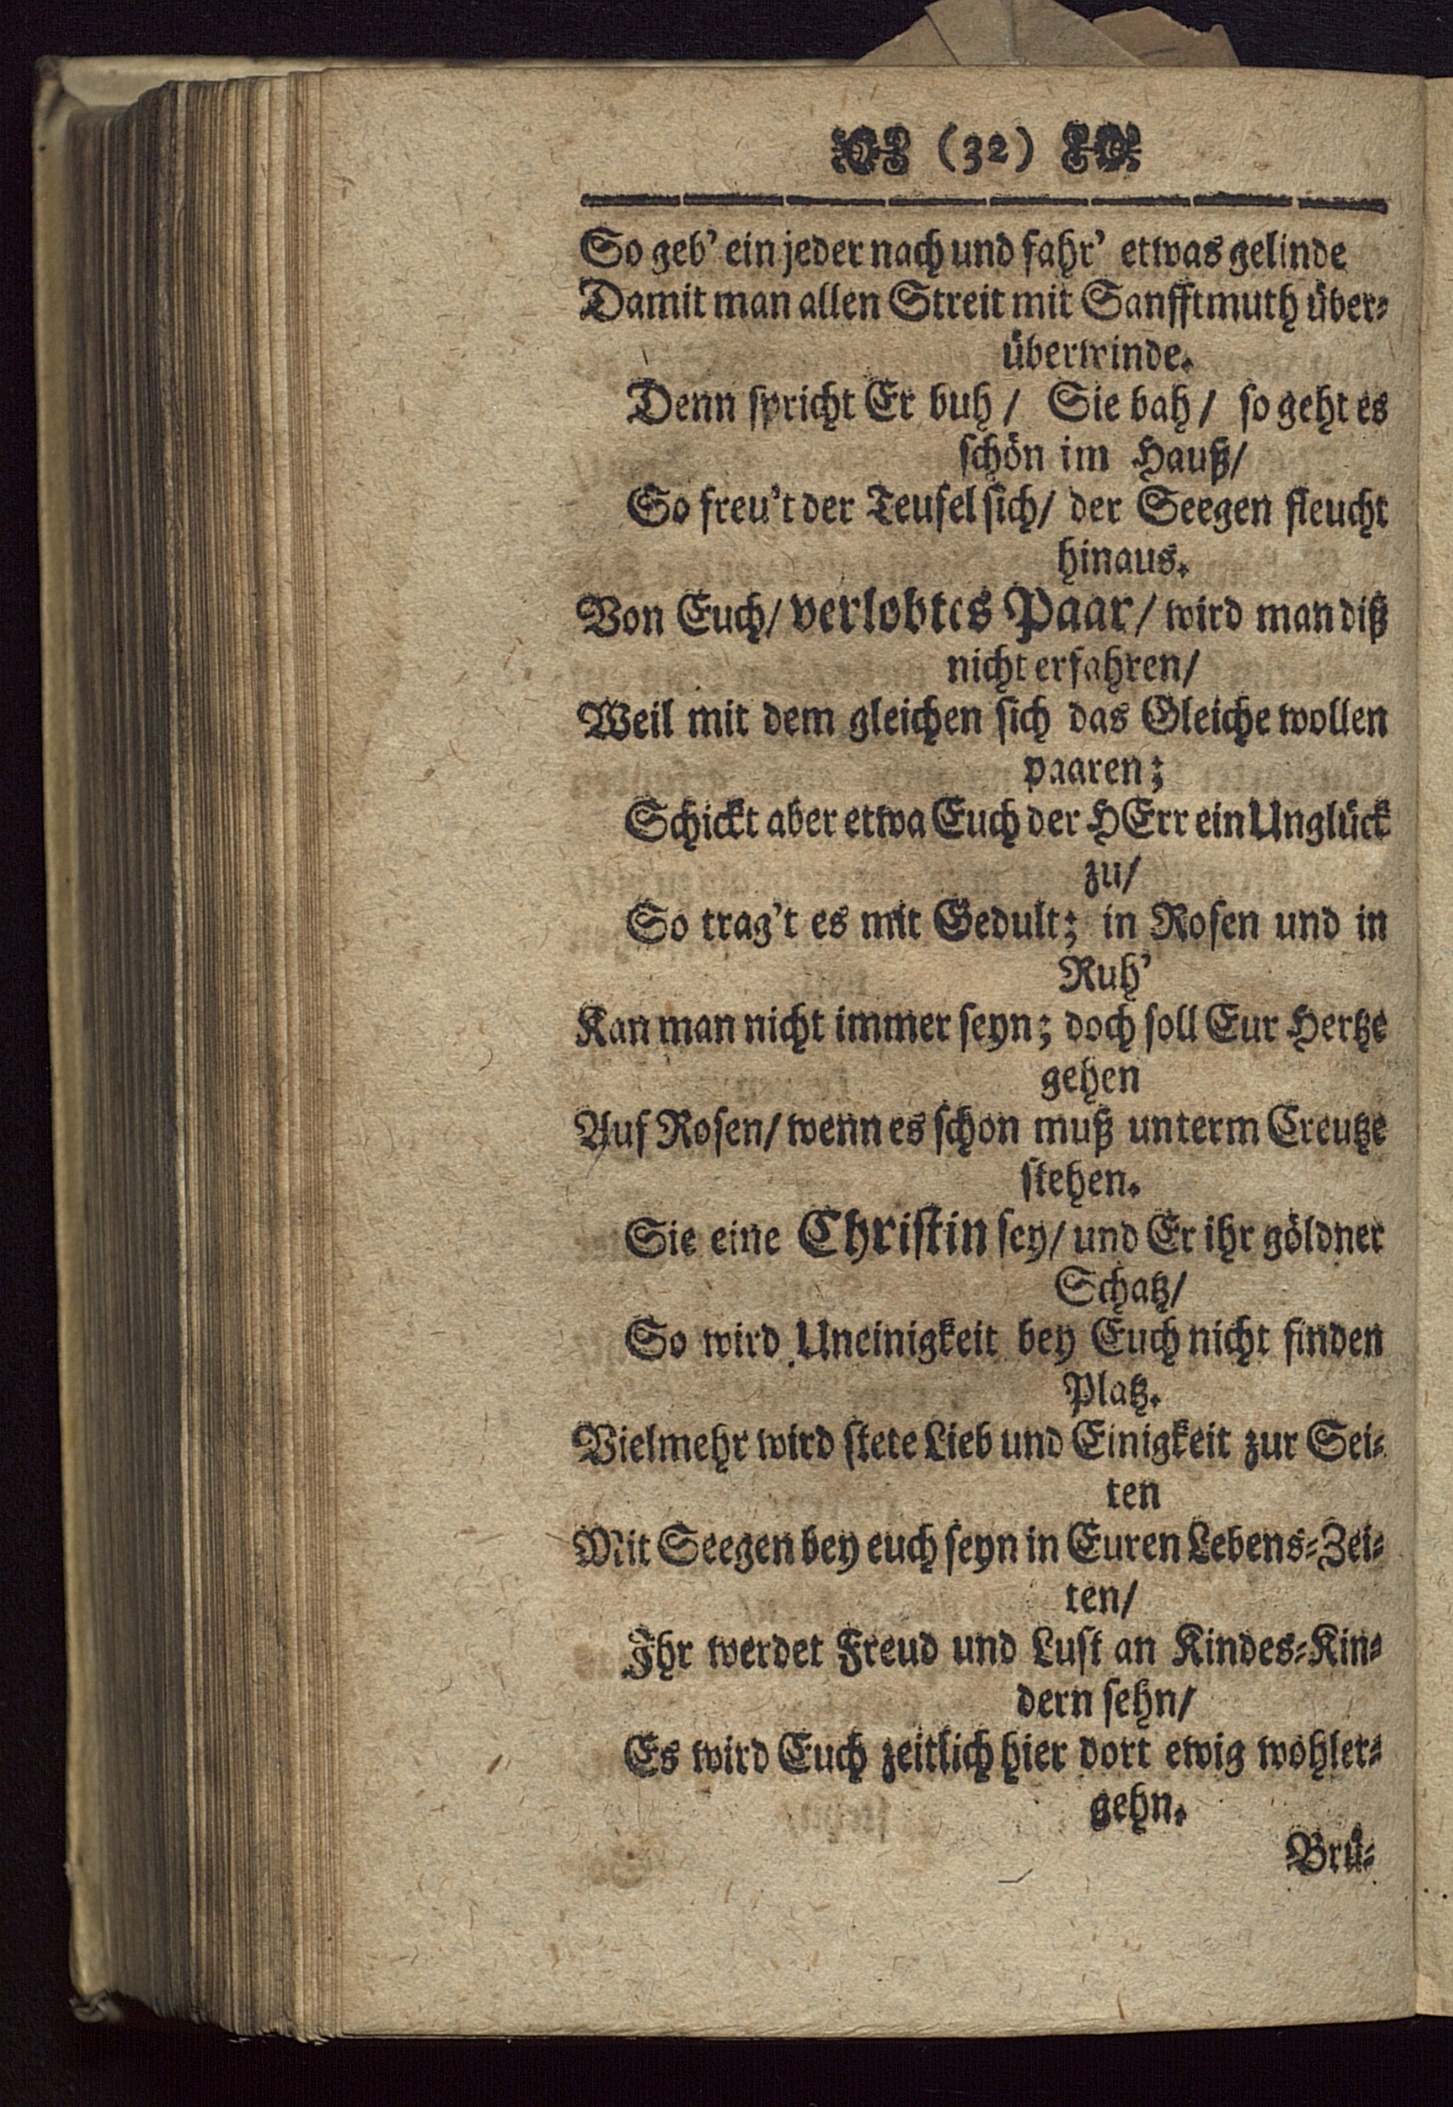 (32)
So geb’ ein jeder nach und fahr’ etwas gelinde
Damit man allen Streit mit Sanfftmuth über-
überwinde.
Denn spricht Er buh / Sie bah / so geht es
schön im Hauß /
So freu’t der Teufel sich / der Seegen fleucht
hinaus.
Von Euch / verlobtes Paar / wird man diß
nicht erfahren /
Weil mit dem gleichen sich das Gleiche wollen
paaren;
Schickt aber etwa Euch der HErr ein Unglück
zu /
So trag’t es mit Gedult; in Rosen und in
Ruh’
Kan man nicht immer seyn; doch soll Eur Hertze
gehen
Auf Rosen / wenn es schon muß unterm Creutze
stehen.
Sie eine Christin sey / und Er ihr göldner
Schatz /
So wird Uneinigkeit bey Euch nicht finden
Platz.
Vielmehr wird stete Lieb und Einigkeit zur Sei-
ten
Mit Seegen bey euch seyn in Euren Lebens-Zei-
ten /
Ihr werdet Freud und Lust an Kindes-Kin-
dern sehn /
Es wird Euch zeitlich hier dort ewig wohler-
gehn.
Brü-